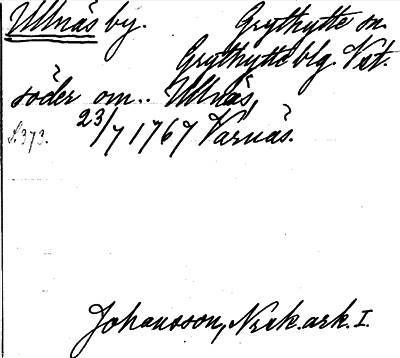 Ullnäs by. Grythytte sn.
Grythytte blg. Vst.
söder om.. Ullnäs,
S. 373. 23/7 1767 Varnäs.
Johansson, Nerk. ark. I.